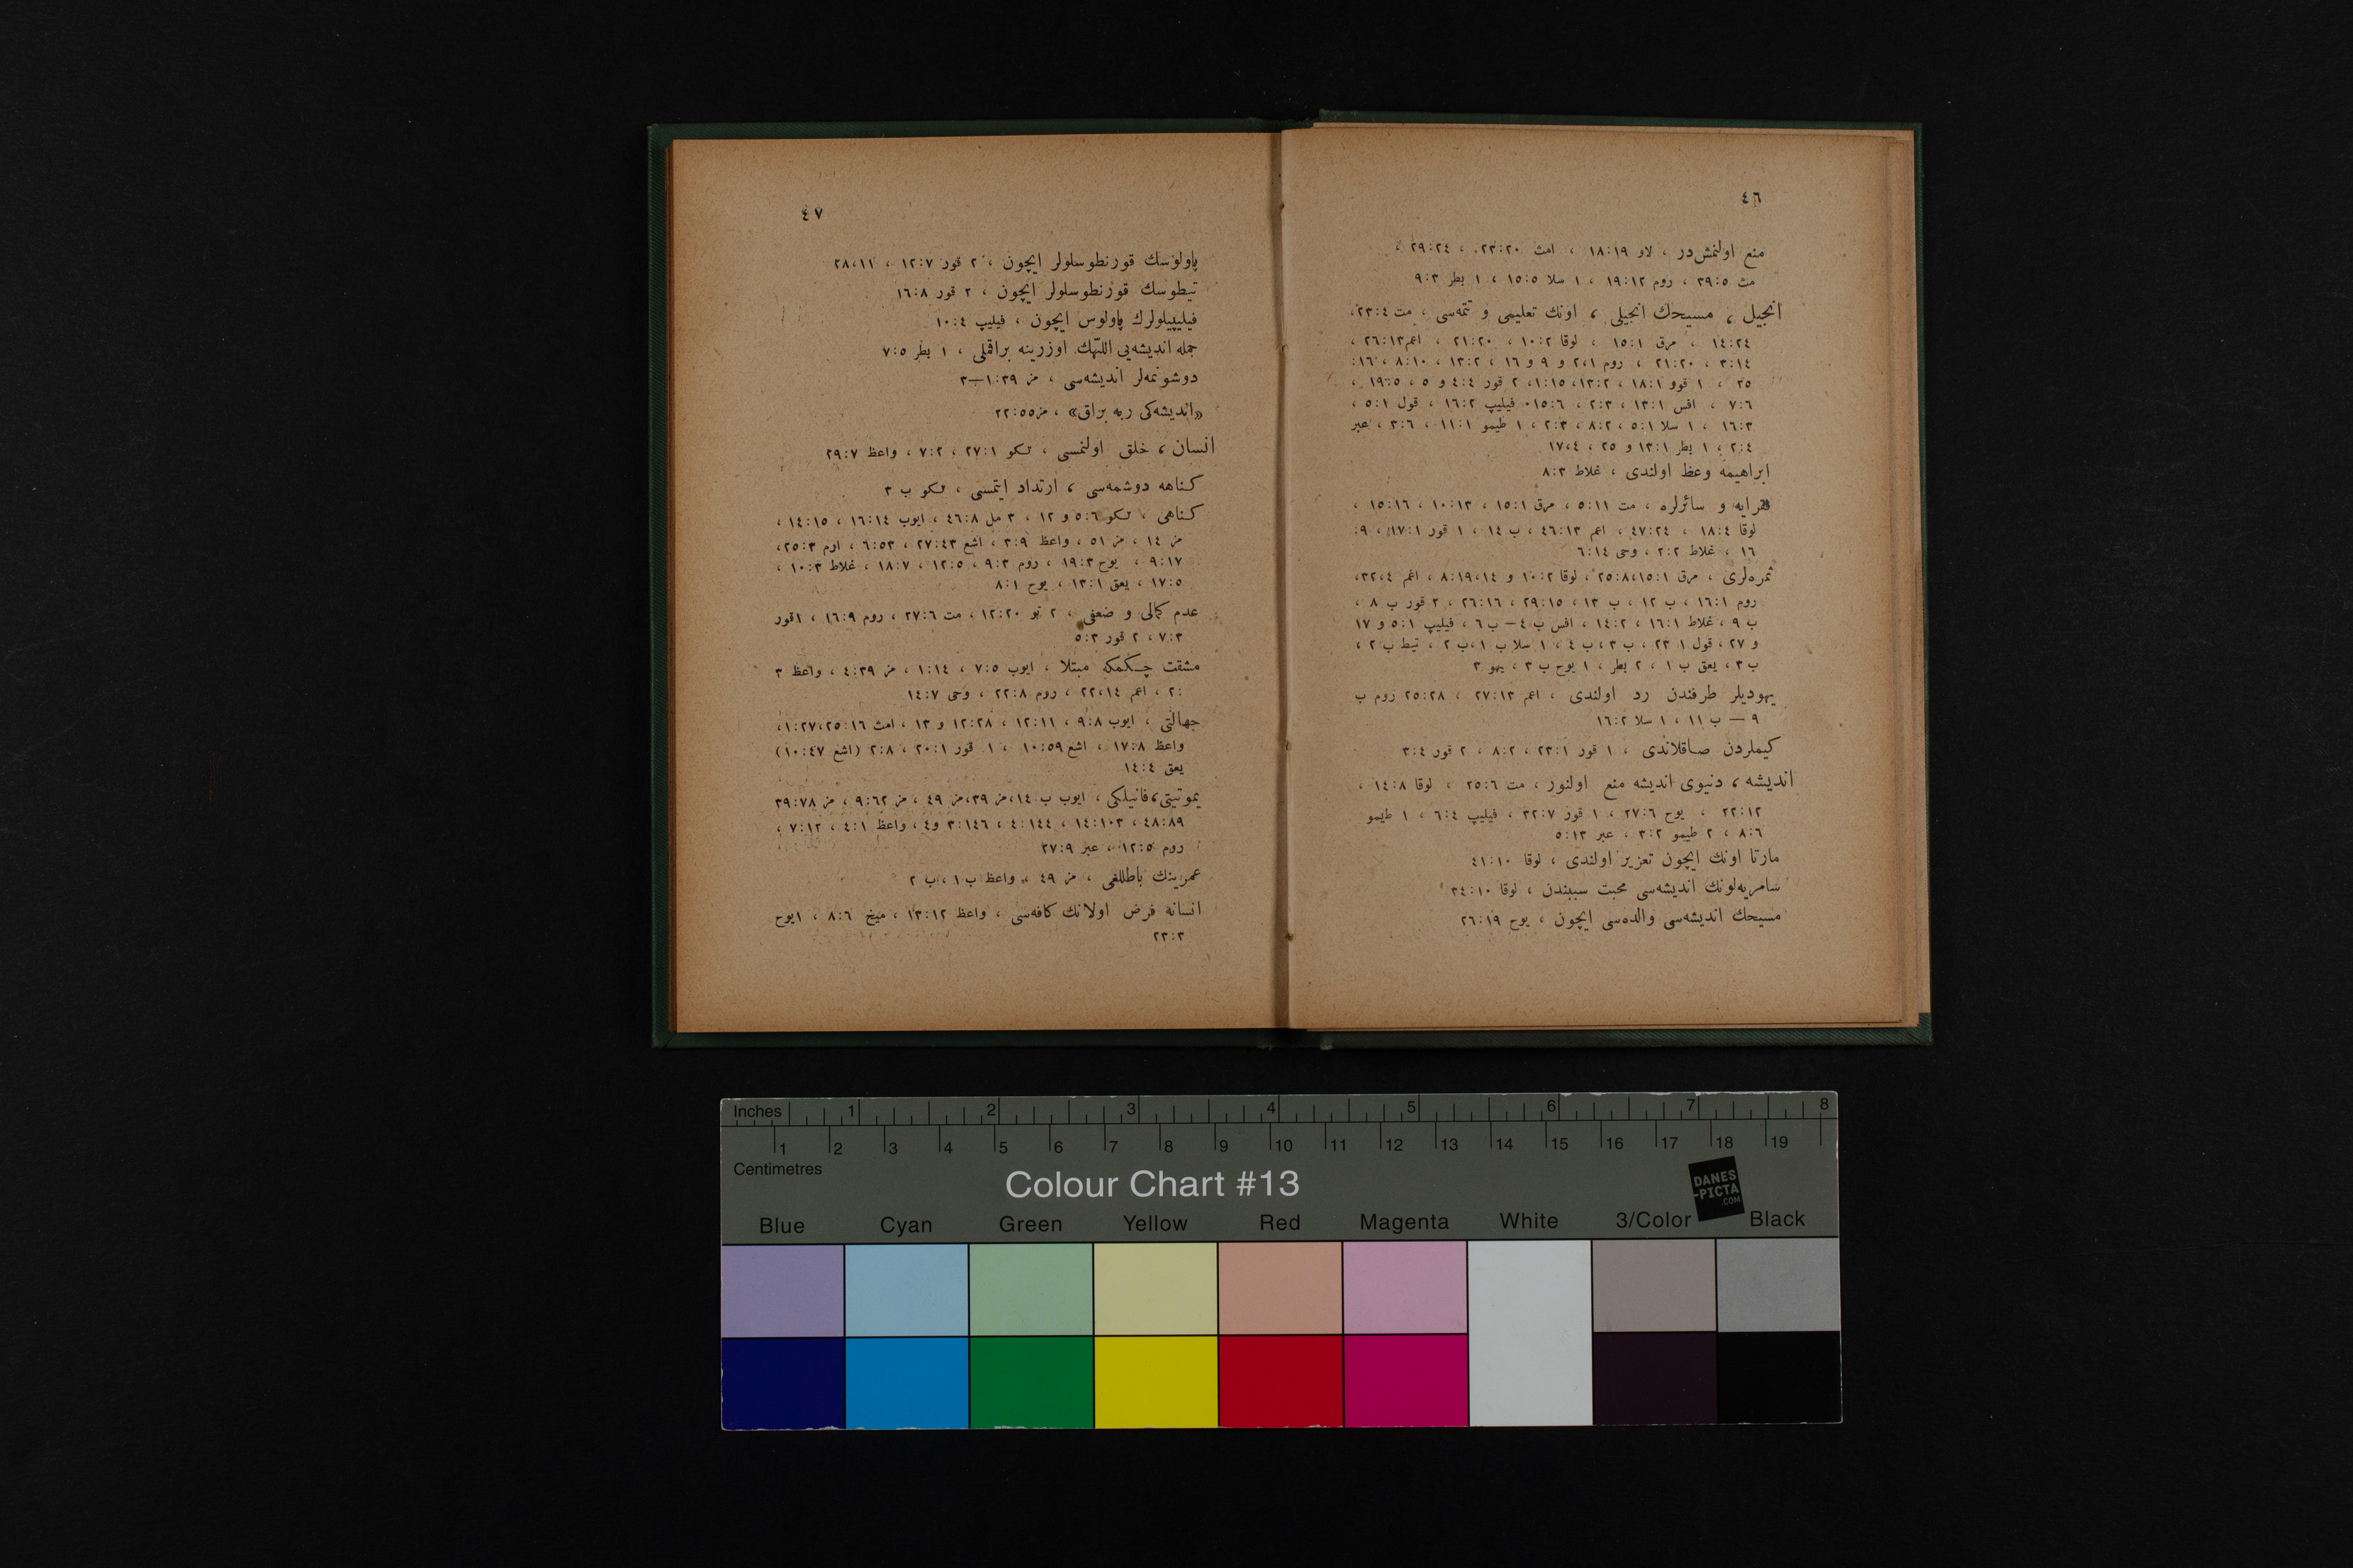 ٤٦
منع اولنمش‌در ، لاو ١٨:١٩ ، امث ٢٣:٢٠، ٢٩:٢٤ ،
مت ٣٩:٥ ، روم ١٩:١٢ ، ١ سلا ١٥:٥ ، ١ بطر ٩:٣
انجیل ، مسیحك انجیلی ، اونك تعلیمی و تتمه‌سی ، مت ٢٣:٤،
١٤:٢٤ ، مرق ١٥:١ ، لوقا ١٠:٢ ، ٢١:٢٠ ، اعم ٢٦:١٣ ،
٣:١٤ ، ٢١:٢٠ ، روم ٢،١ و ٩ و ١٦ ، ١٣:٢ ، ٨:١٠ ، ١٦:
٢٥ ، ١ قور ١٨:١ ، ١٣:٢، ١:١٥، ٢ قور ٤:٤ و ٥ ، ١٩:٥ ،
٧:٦ ، افس ١٣:١ ، ٢:٣ ، ١٥:٦، فیلیپ ١٦:٢ ، قول ٥:١ ،
١٦:٣ ، ١ سلا ٥:١ ، ٨:٢ ، ٢:٣ ، ١ طیمو ١١:١ ، ٣:٦ ، عبر
٢:٤ ، ١ بطر ١٣:١ و ٢٥ ، ١٧،٤
ابراهیمه وعظ اولندی ، غلاط ٨:٣
فقرایه و سائرلره ، مت ٥:١١ ، مرق ١٥:١ ، ١٠:١٣ ، ١٥:١٦ ،
لوقا ١٨:٤ ، ٤٧:٢٤ ، اعم ٤٦:١٣ ، ب ١٤ ، ١ قور ١٧:١ ، ٩:
١٦ ، غلاط ٢:٢ ، وحی ٦:١٤
ثمره‌لری ، مرق ١٥:١،٨:٢٥ ، لوقا ١٠:٢ و ١٤،١٩:٨ ، اعم ٣٢،٤،
روم ١٦:١ ، ب ١٢ ، ب ١٣ ، ٢٩:١٥ ، ٢٦:١٦ ، ٢ قور ب ٨ ،
ب ٩ ، غلاط ١٦:١ ، ١٤:٢ ، افس ب ٤ — ب ٦ ، فیلیپ ٥:١ و ١٧
و ٢٧ ، قول ١ ٢٣ ، ب ٣ ، ب ٤ ، ١ سلا ب ١ ، ب ٢ ، تیط ب ٢ ،
ب ٣ ، یعق ب ١ ، ٢ بطر ، ١ یوح ب ٣ ، یهو ٣
یهودیلر طرفندن رد اولندی ، اعم ٢٧:١٣ ، ٢٥:٢٨ روم ب
٩ — ب ١١ ، ١ سلا ١٦:٢
كیملردن صاقلاندی ، ١ قور ٢٣:١ ، ٨:٢ ، ٢ قور ٣:٤
اندیشه ، دنیوی اندیشه منع اولنور ، مت ٢٥:٦ ، لوقا ١٤:٨ ،
٢٢:١٢ ، یوح ٢٧:٦ ، ١ قور ٣٢:٧ ، فیلیپ ٦:٤ ، ١ طیمو
٨:٦ ، ٢ طیمو ٣:٢ ، عبر ٥:١٣
مارتا اونك ایچون تعزیر اولندی ، لوقا ٤١:١٠
سامریه‌لونك اندیشه‌سی محبت سببندن ، لوقا ٣٤:١٠
مسیحك اندیشه‌سی والده‌سی ایچون ، یوح ٢٦:١٩
٤٧
پاولوسك قورنطوسلولر ایچون ، ٢ قور ١٢:٧ ، ٢٨،١١
تیطوسك قورنطوسلولر ایچون ، ٢ قور ١٦:٨
فیلیپیلولرك پاولوس ایچون ، فیلیپ ١٠:٤
جمله اندیشه‌یی اللّٰهك اوزرینه براقملی ، ١ بطر ٧:٥
دوشونمه‌لر اندیشه‌سی ، مز ١:٣٩—٣
«اندیشه‌كی ربه براق» ، مز ٢٢:٥٥
انسان ، خلق اولنمسی ، تكو ٢٧:١ ، ٧:٢ ، واعظ ٢٩:٧
كناهه دوشمه‌سی ، ارتداد ایتمسی ، تكو ب ٣
كناهی ، تكو ٥:٦ و ١٢ ، ٣ مل ٤٦:٨ ، ایوب ١٦:١٤ ، ١٤:١٥ ،
مز ١٤ ، مز ٥١ ، واعظ ٣:٩ ، اشع ٢٧:٤٣ ، ٦:٥٣ ، ارم ٢٥:٣،
٩:١٧ ، یوح ١٩:٣ ، روم ٩:٣ ، ١٢:٥ ، ١٨:٧ ، غلاط ١٠:٣ ،
١٧:٥ ، یعق ١٣:١ ، یوح ٨:١
عدم كمالی و ضعفی ، ٢ تو ١٢:٢٠ ، مت ٢٧:٦ ، روم ١٦:٩ ، ١قور
٧:٣ ، ٢ قور ٥:٣
مشقت چكمكه مبتلا ، ایوب ٧:٥ ، ١:١٤ ، مز ٤:٣٩ ، واعظ ٣
:٢ ، اعم ٢٢،١٤ ، روم ٢٢:٨ ، وحی ١٤:٧
جهالتی ، ایوب ٩:٨ ، ١٢:١١ ، ١٢:٢٨ و ١٣ ، امث ٢٥:١٦،١:٢٧،
واعظ ١٧:٨ ، اشع ١٠:٥٩ ، ١ قور ٢٠:١ ، ٢:٨ (اشع ١٠:٤٧)
یعق ١٤:٤
یموتیتی ، فانیلكی ، ایوب ب ١٤، مز ٣٩، مز ٤٩ ، مز ٩:٦٢ ، مز ٣٩:٧٨
٤٨:٨٩ ، ١٤:١٠٣ ، ٤:١٤٤ ، ٣:١٤٦ و٤ ، واعظ ٤:١ ، ٧:١٢ ،
روم ١٢:٥ ، عبر ٢٧:٩
عمرینك باطللغی ، مز ٤٩ ، واعظ ب ١ ، ب ٢
انسانه فرض اولانك كافه‌سی ، واعظ ١٣:١٢ ، میخ ٨:٦ ، ١یوح
٢٣:٣
Inches 1 2 3 4 5 6 7 8
1 2 3 4 5 6 7 8 9 10 11 12 13 14 15 16 17 18 19
Centimetres
Colour Chart #13
DANES
-PICTA
.COM
Blue Cyan Green Yellow Red Magenta White 3/Color Black